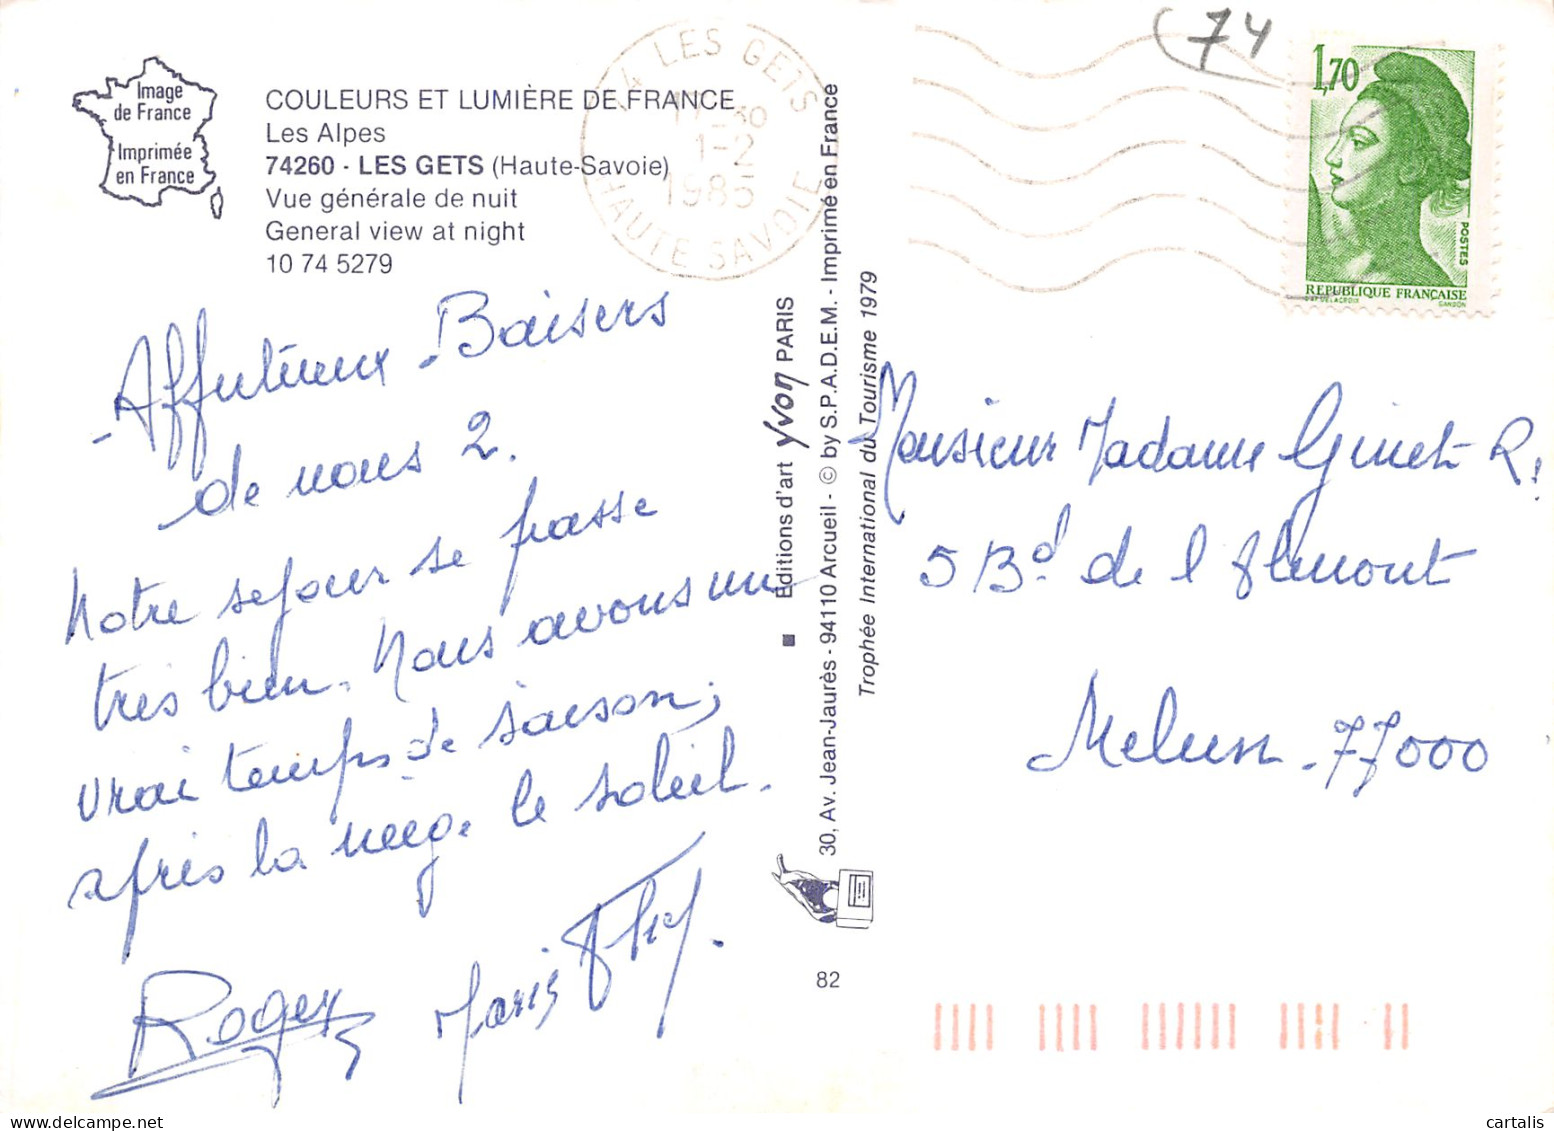 Image
de France
Imprimée
en France
COULEURS ET LUMIÈRE DE FRANCE
Les Alpes
74260 - LES GETS (Haute-Savoie)
Vue générale de nuit
General view at night
10 74 5279
74 LES GETS
1-2
1985
HAUTE SAVOIE
74
1,70
POSTES
REPUBLIQUE FRANÇAISE
D'AP. DELACROIX GANDON
Affutueux - Baisers
de nous 2.
Notre sejour se passe
très bien. Nous avons un
vrai temps de saison;
après la neige le soleil.
Roger
Editions d'art yvon PARIS
30, Av. Jean-Jaurès - 94110 Arcueil - © by S.P.A.D.E.M. - Imprimé en France
Trophée International du Tourisme 1979
82
Monsieur Madame Ginet R.
5 Bd de l'Almont
Melun - 77000
www.delcampe.net
cartalis